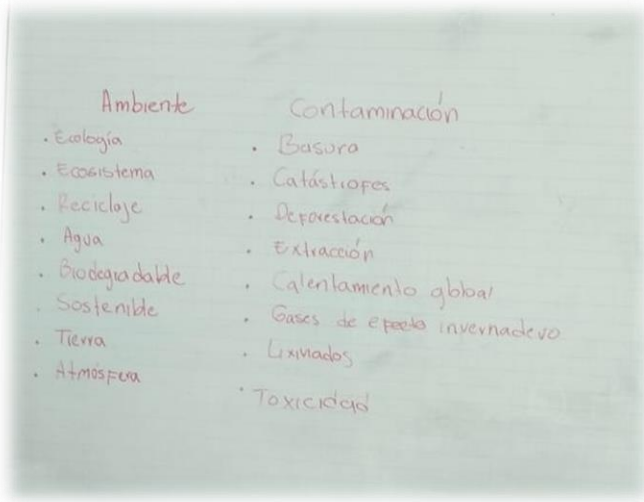 Ambiente
• Ecología
• Ecosistema
• Reciclaje
• Agua
• Biodegradable
• Sostenible
• Tierra
• Atmósfera
Contaminación
• Basura
• Catástrofes
• Deforestación
• Extracción
• Calentamiento global
• Gases de efecto invernadero
• Lixiviados
• Toxicidad